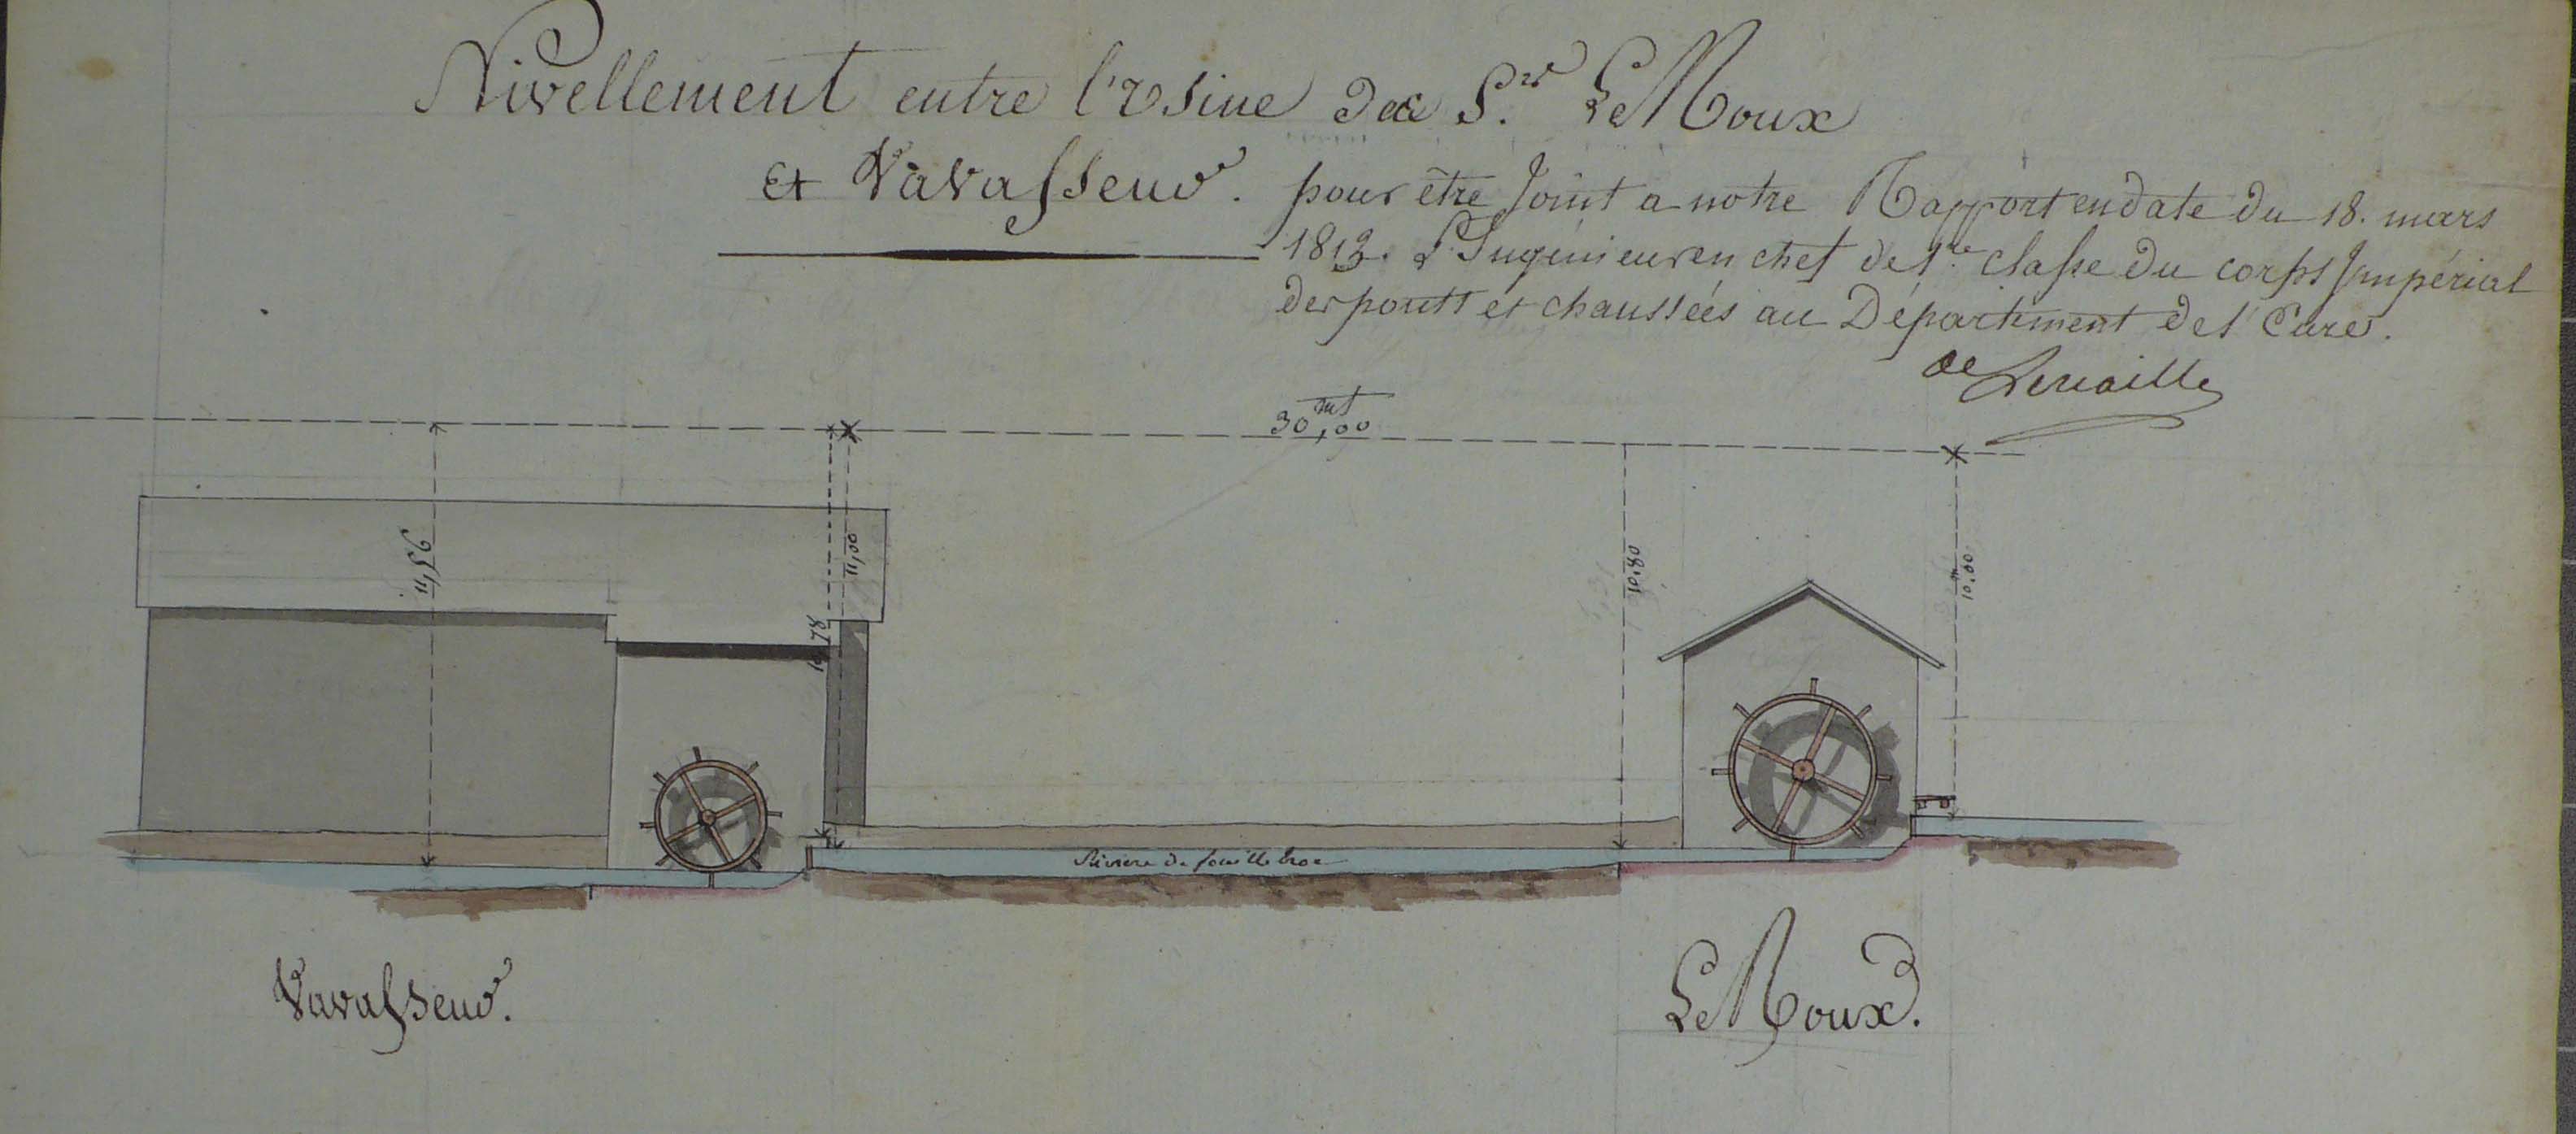 Nivellement entre l'Usine des Srs Le Roux
et Vavasseur.
pour être Joint a notre Rapport en date du 18. mars
1813. L'Ingénieur en chef de 1re classe du corps Impérial
des ponts et chaussées au Département de l'Eure.
30mt,00
11,56
11,00
10,78
10,80
10m,00
Riviere de
Vavasseur.
Le Roux.